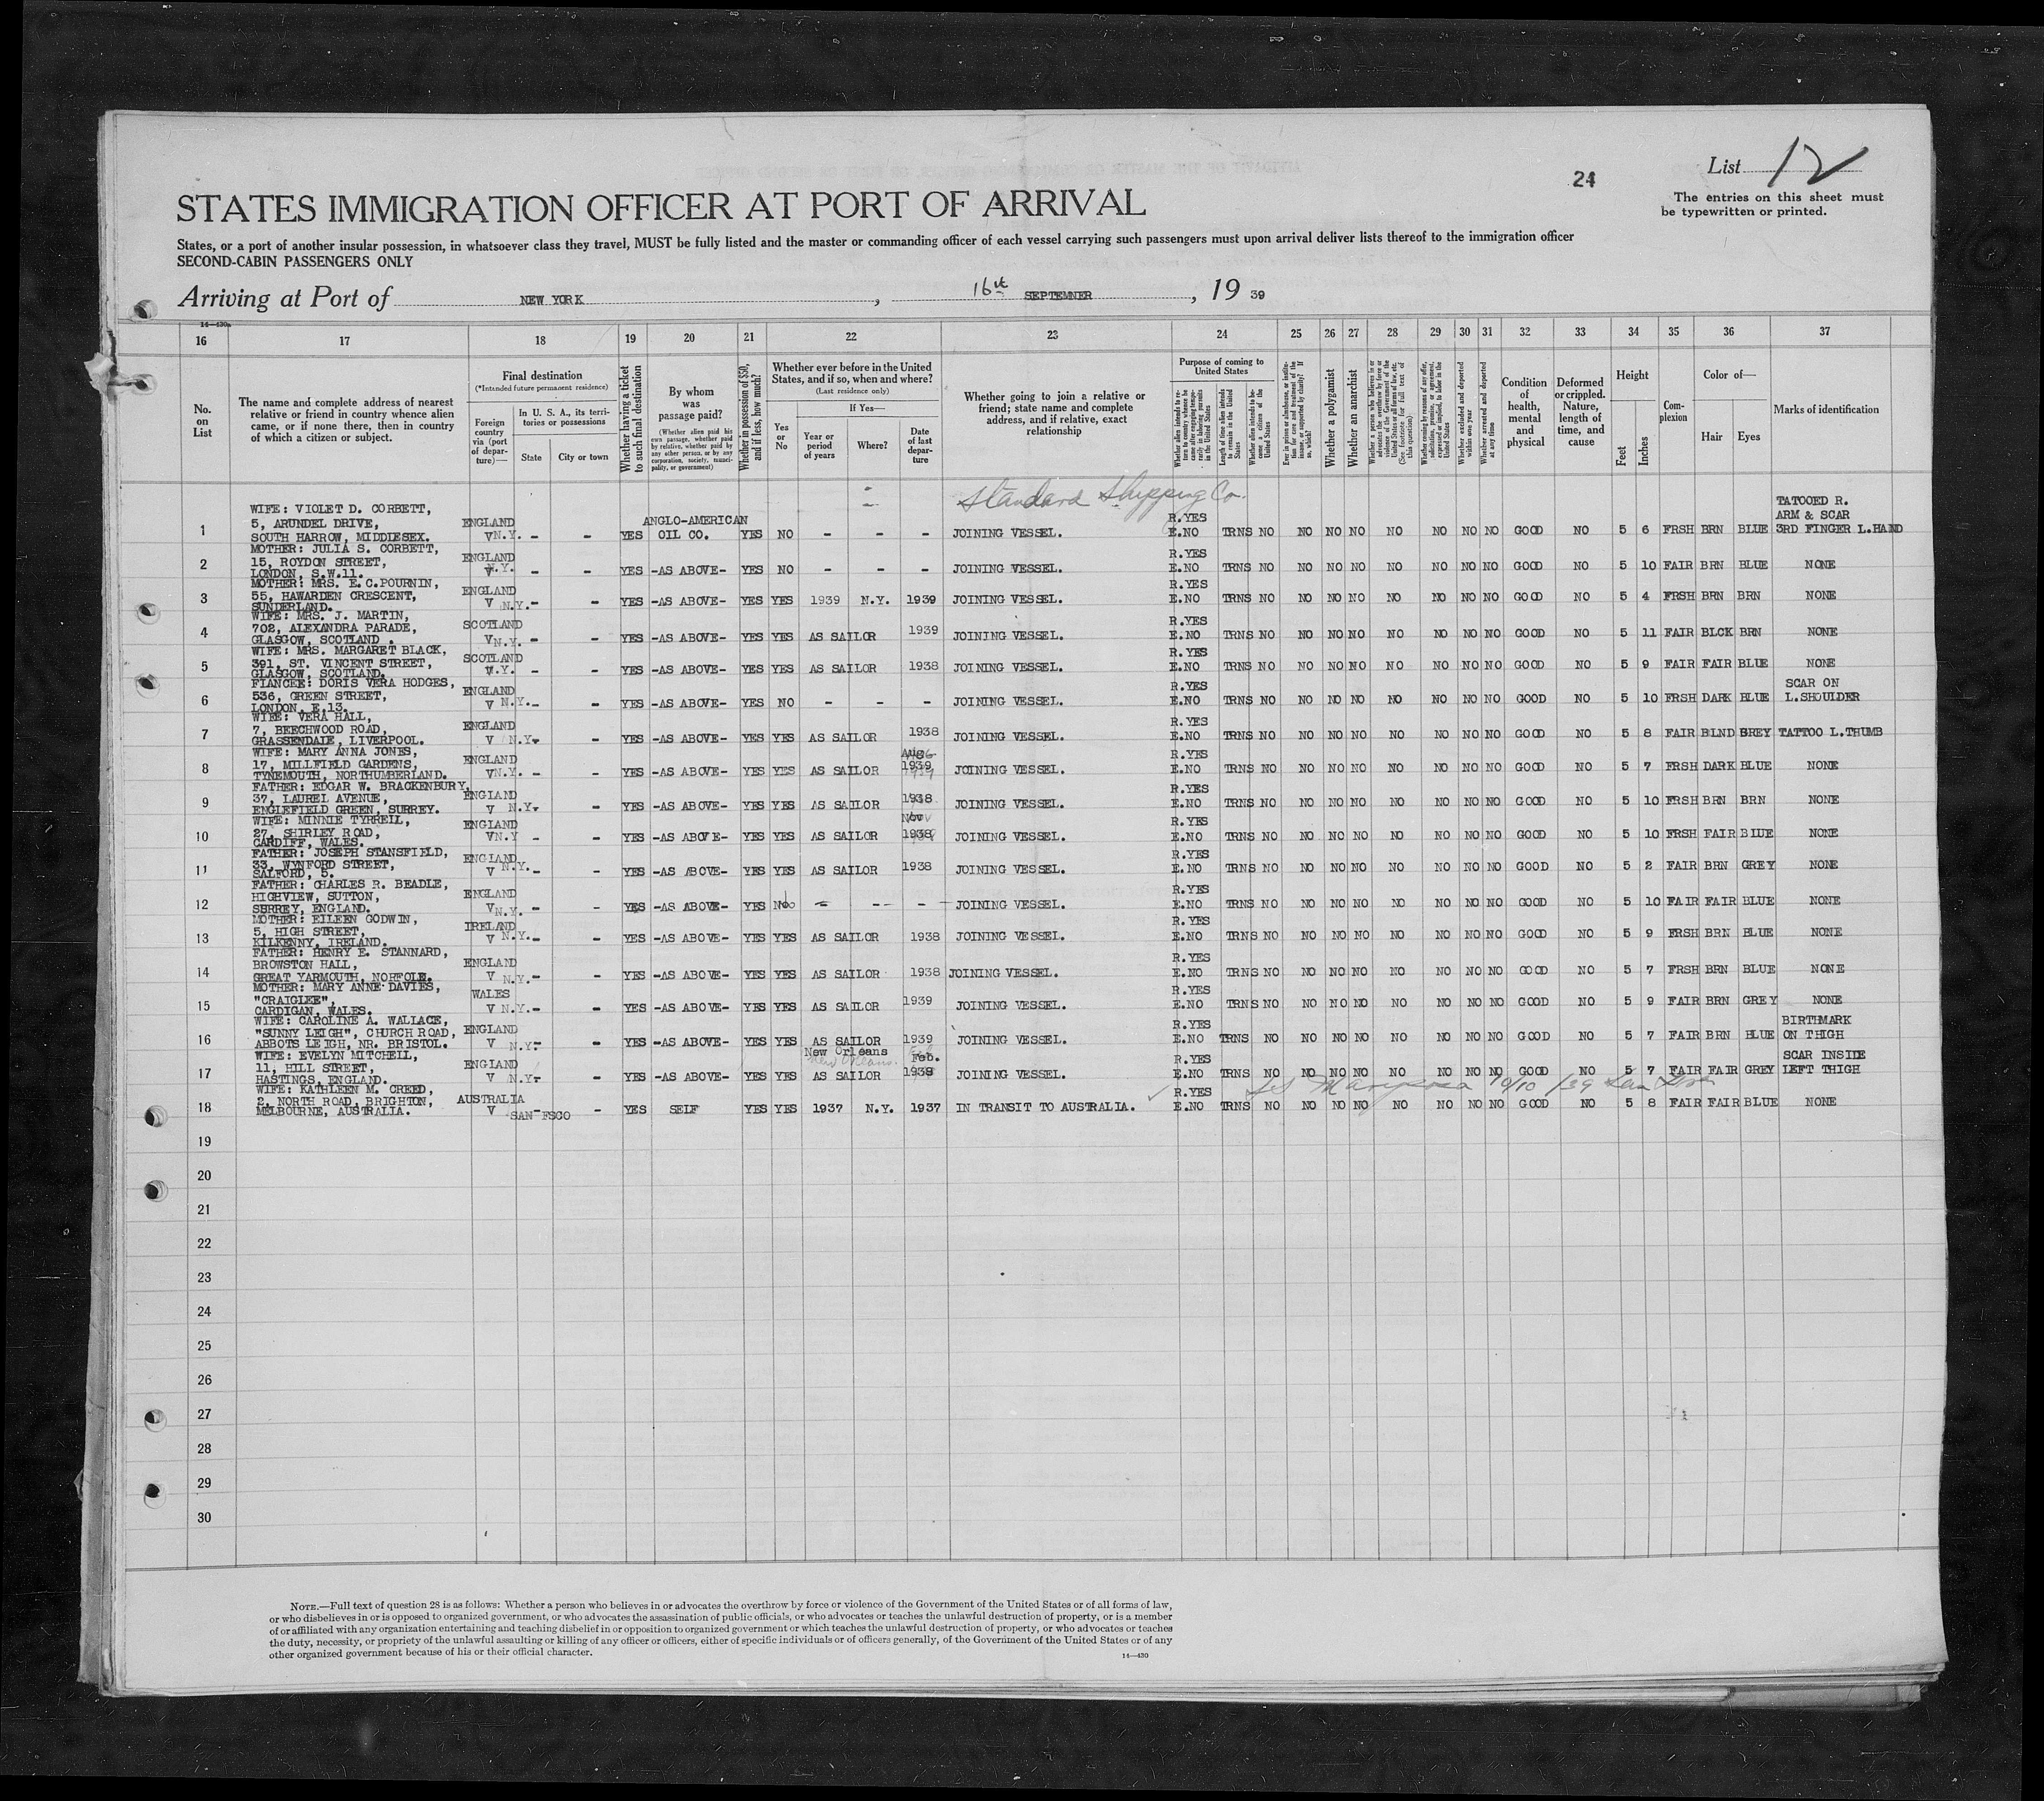 24
List 12
The entries on this sheet must
be typewritten or printed.
STATES IMMIGRATION OFFICER AT PORT OF ARRIVAL
States, or a port of another insular possession, in whatsoever class they travel, MUST be fully listed and the master or commanding officer of each vessel carrying such passengers must upon arrival deliver lists thereof to the immigration officer
SECOND-CABIN PASSENGERS ONLY
Arriving at Port of NEW YORK, 16st SEPTEMNER, 19 39
14—430a
16 17 18 19 20 21 22 23 24 25 26 27 28 29 30 31 32 33 34 35 36 37
No. on List
The name and complete address of nearest
relative or friend in country whence alien
came, or if none there, then in country
of which a citizen or subject.
Final destination
(*Intended future permanent residence)
Foreign country via (port of departure)—
In U. S. A., its territories or possessions
State
City or town
Whether having a ticket to such final destination
By whom was passage paid?
(Whether alien paid his own passage, whether paid by relative, whether paid by any other person, or by any corporation, society, municipality, or government)
Whether in possession of $50, and if less, how much?
Whether ever before in the United
States, and if so, when and where?
(Last residence only)
Yes or No
If Yes—
Year or period of years
Where?
Date of last departure
Whether going to join a relative or
friend; state name and complete
address, and if relative, exact
relationship
Purpose of coming to United States
Whether alien intends to return to country whence he came after engaging temporarily in laboring pursuits in the United States
Length of time alien intends to remain in the United States
Whether alien intends to become a citizen of the United States
Whether a polygamist
Whether an anarchist
Whether excluded and deported within one year
Whether arrested and deported at any time
Condition of health, mental and physical
Deformed or crippled. Nature, length of time, and cause
Height
Feet
Inches
Complexion
Color of—
Hair
Eyes
Marks of identification
Standard Shipping Co.
1 WIFE: VIOLET D. CORBETT, 5, ARUNDEL DRIVE, SOUTH HARROW, MIDDLESEX. ENGLAND V N.Y. - - YES ANGLO-AMERICAN OIL CO. YES NO - - - JOINING VESSEL. R.YES E.NO TRNS NO NO NO NO NO NO NO NO GOOD NO 5 6 FRSH BRN BLUE TATOOED R. ARM & SCAR 3RD FINGER L.HAND
2 MOTHER: JULIA S. CORBETT, 15, ROYDON STREET, LONDON, S.W.11. ENGLAND V N.Y. - - YES -AS ABOVE- YES NO - - - JOINING VESSEL. R.YES E.NO TRNS NO NO NO NO NO NO NO NO GOOD NO 5 10 FAIR BRN BLUE NONE
3 MOTHER: MRS. E.C.POURNIN, 55, HAWARDEN CRESCENT, SUNDERLAND. ENGLAND V N.Y. - - YES -AS ABOVE- YES YES 1939 N.Y. 1939 JOINING VESSEL. R.YES E.NO TRNS NO NO NO NO NO NO NO NO GOOD NO 5 4 FRSH BRN BRN NONE
4 WIFE: MRS. J. MARTIN, 702, ALEXANDRA PARADE, GLASGOW, SCOTLAND . SCOTLAND V N.Y. - - YES -AS ABOVE- YES YES AS SAILOR 1939 JOINING VESSEL. R.YES E.NO TRNS NO NO NO NO NO NO NO NO GOOD NO 5 11 FAIR BLCK BRN NONE
5 WIFE: MRS. MARGARET BLACK, 391, ST. VINCENT STREET, GLASGOW, SCOTLAND. SCOTLAND V N.Y. - - YES -AS ABOVE- YES YES AS SAILOR 1938 JOINING VESSEL. R.YES E.NO TRNS NO NO NO NO NO NO NO NO GOOD NO 5 9 FAIR FAIR BLUE NONE
6 FIANCEE: DORIS VERA HODGES, 536, GREEN STREET, LONDON, E.13. ENGLAND V N.Y. - - YES -AS ABOVE- YES NO - - - JOINING VESSEL. R.YES E.NO TRNS NO NO NO NO NO NO NO NO GOOD NO 5 10 FRSH DARK BLUE SCAR ON L.SHOULDER
7 WIFE: VERA HALL, 7, BEECHWOOD ROAD, GRASSENDALE, LIVERPOOL. ENGLAND V N.Y. - - YES -AS ABOVE- YES YES AS SAILOR 1938 JOINING VESSEL. R.YES E.NO TRNS NO NO NO NO NO NO NO NO GOOD NO 5 8 FAIR BLND GREY TATTOO L.THUMB
8 WIFE: MARY ANNA JONES, 17, MILLFIELD GARDENS, TYNEMOUTH, NORTHUMBERLAND. ENGLAND V N.Y. - - YES -AS ABOVE- YES YES AS SAILOR Aug 1939 JOINING VESSEL. R.YES E.NO TRNS NO NO NO NO NO NO NO NO GOOD NO 5 7 FRSH DARK BLUE NONE
9 FATHER: EDGAR W. BRACKENBURY, 37, LAUREL AVENUE, ENGLEFIELD GREEN, SURREY. ENGLAND V N.Y. - - YES -AS ABOVE- YES YES AS SAILOR 1938 JOINING VESSEL. R.YES E.NO TRNS NO NO NO NO NO NO NO NO GOOD NO 5 10 FRSH BRN BRN NONE
10 WIFE: MINNIE TYRRELL, 27, SHIRLEY ROAD, CARDIFF, WALES. ENGLAND V N.Y - - YES -AS ABOVE- YES YES AS SAILOR Nov 1938 JOINING VESSEL. R.YES E.NO TRNS NO NO NO NO NO NO NO NO GOOD NO 5 10 FRSH FAIR BLUE NONE
11 FATHER: JOSEPH STANSFIELD, 33, WYNFORD STREET, SALFORD, 5. ENGLAND V N.Y. - - YES -AS ABOVE- YES YES AS SAILOR 1938 JOINING VESSEL. R.YES E.NO TRNS NO NO NO NO NO NO NO NO GOOD NO 5 2 FAIR BRN GREY NONE
12 FATHER: CHARLES R. BEADLE, HIGHVIEW, SUTTON, SURREY, ENGLAND. ENGLAND V N.Y. - - YES -AS ABOVE- YES No - -- - JOINING VESSEL. R.YES E.NO TRNS NO NO NO NO NO NO NO NO GOOD NO 5 10 FAIR FAIR BLUE NONE
13 MOTHER: EILEEN GODWIN, 5, HIGH STREET, KILKENNY, IRELAND. IRELAND V N.Y. - - YES -AS ABOVE- YES YES AS SAILOR 1938 JOINING VESSEL. R.YES E.NO TRNS NO NO NO NO NO NO NO NO GOOD NO 5 9 FRSH BRN BLUE NONE
14 FATHER: HENRY E. STANNARD, BROWSTON HALL, GREAT YARMOUTH, NORFOLK. ENGLAND V N.Y. - - YES -AS ABOVE- YES YES AS SAILOR 1938 JOINING VESSEL. R.YES E.NO TRNS NO NO NO NO NO NO NO NO GOOD NO 5 7 FRSH BRN BLUE NONE
15 MOTHER: MARY ANNE DAVIES, "CRAIGLEE", CARDIGAN, WALES. WALES V N.Y. - - YES -AS ABOVE- YES YES AS SAILOR 1939 JOINING VESSEL. R.YES E.NO TRNS NO NO NO NO NO NO NO NO GOOD NO 5 9 FAIR BRN GREY NONE
16 WIFE: CAROLINE A. WALLACE, "SUNNY LEIGH", CHURCH ROAD, ABBOTS LEIGH, NR. BRISTOL. ENGLAND V N.Y. - - YES -AS ABOVE- YES YES AS SAILOR 1939 JOINING VESSEL. R.YES E.NO TRNS NO NO NO NO NO NO NO NO GOOD NO 5 7 FAIR BRN BLUE BIRTHMARK ON THIGH
17 WIFE: EVELYN MITCHELL, 11, HILL STREET, HASTINGS, ENGLAND. ENGLAND V N.Y. - - YES -AS ABOVE- YES YES New Orleans AS SAILOR Feb. 1938 JOINING VESSEL. R.YES E.NO TRNS NO NO NO NO NO NO NO NO GOOD NO 5 7 FAIR FAIR GREY SCAR INSIDE LEFT THIGH
SS Mariposa 10/10/39
18 WIFE: KATHLEEN M. CREED, 2, NORTH ROAD, BRIGHTON, MELBOURNE, AUSTRALIA. AUSTRALIA V SAN-FSCO - YES SELF YES YES 1937 N.Y. 1937 IN TRANSIT TO AUSTRALIA. R.YES E.NO TRNS NO NO NO NO NO NO NO NO GOOD NO 5 8 FAIR FAIR BLUE NONE
19
20
21
22
23
24
25
26
27
28
29
30
NOTE.—Full text of question 28 is as follows: Whether a person who believes in or advocates the overthrow by force or violence of the Government of the United States or of all forms of law,
or who disbelieves in or is opposed to organized government, or who advocates the assassination of public officials, or who advocates or teaches the unlawful destruction of property, or is a member
of or affiliated with any organization entertaining and teaching disbelief in or opposition to organized government or which teaches the unlawful destruction of property, or who advocates or teaches
the duty, necessity, or propriety of the unlawful assaulting or killing of any officer or officers, either of specific individuals or of officers generally, of the Government of the United States or of any
other organized government because of his or their official character.
14—430